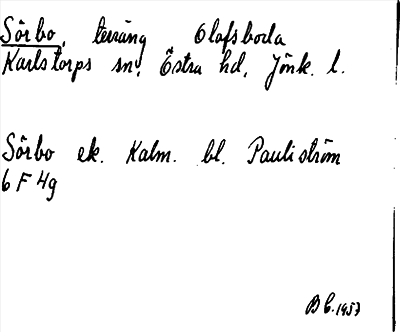 Sörbo, terräng Olofsboda
Karlstorps sn, Östra hd, Jönk. l.
Sörbo ek. Kalm. bl. Pauliström
6 F 4g
B C. 1957